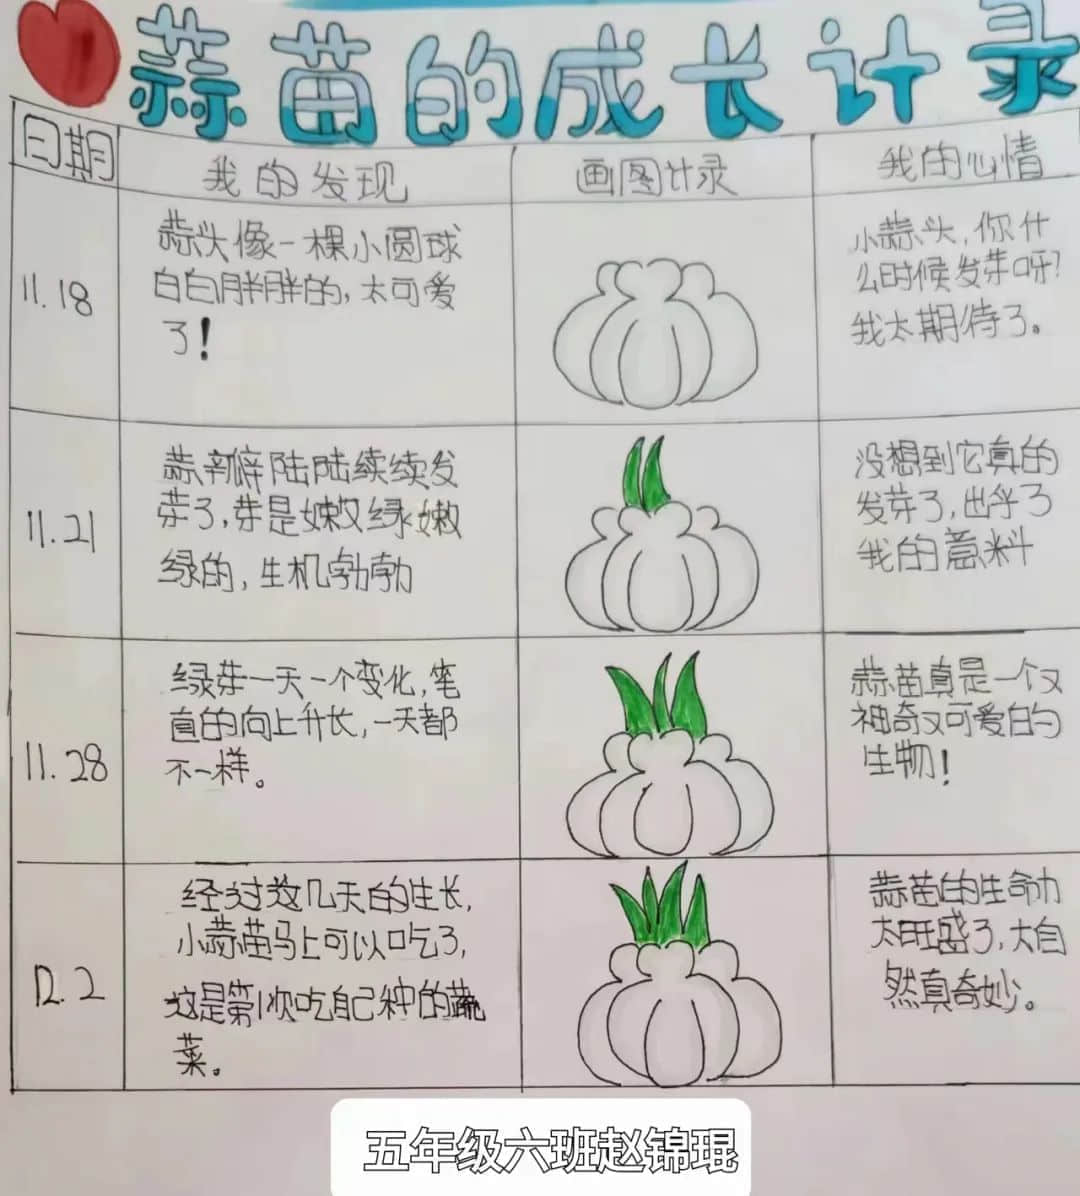 蒜苗的成长计录
日期
我的发现
画图计录
我的心情
11.18
蒜头像一棵小圆球
白白胖胖的,太可爱
了!
小蒜头,你什
么时候发芽呀?
我太期待了。
11.21
蒜瓣陆陆续续发
芽了,芽是嫩绿嫩
绿的,生机勃勃
没想到它真的
发芽了,出乎了
我的意料
11.28
绿芽一天一个变化,笔
直的向上升长,一天都
不一样。
蒜苗真是一个又
神奇又可爱的
生物!
12.2
经过这几天的生长,
小蒜苗马上可以吃了,
这是第1次吃自己种的蔬
菜。
蒜苗的生命力
太旺盛了,大自
然真奇妙。
五年级六班赵锦琨